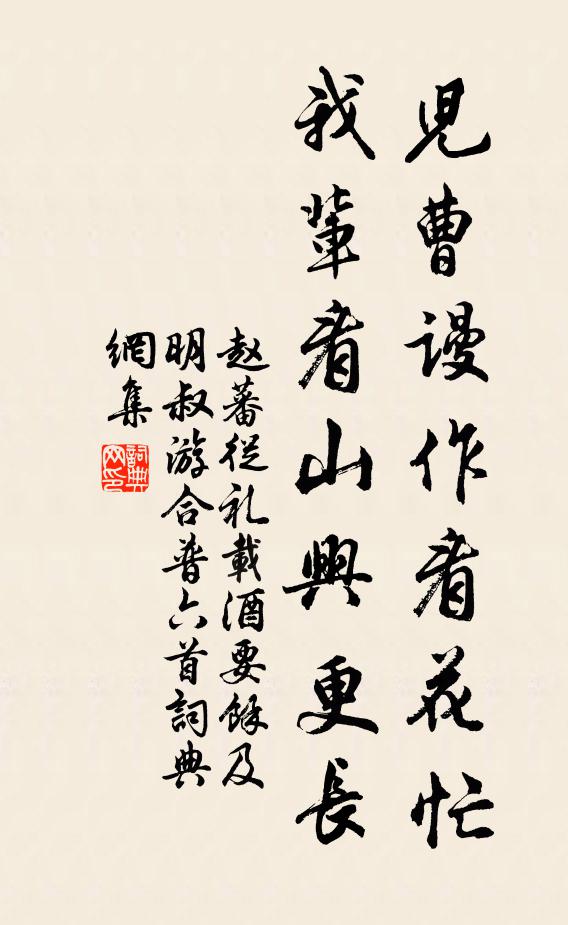 児曹謾作看花忙
我輩看山興更長
赵蕃從礼載酒要餘及
明叔游合普六首詞典
網集
詞典
网印